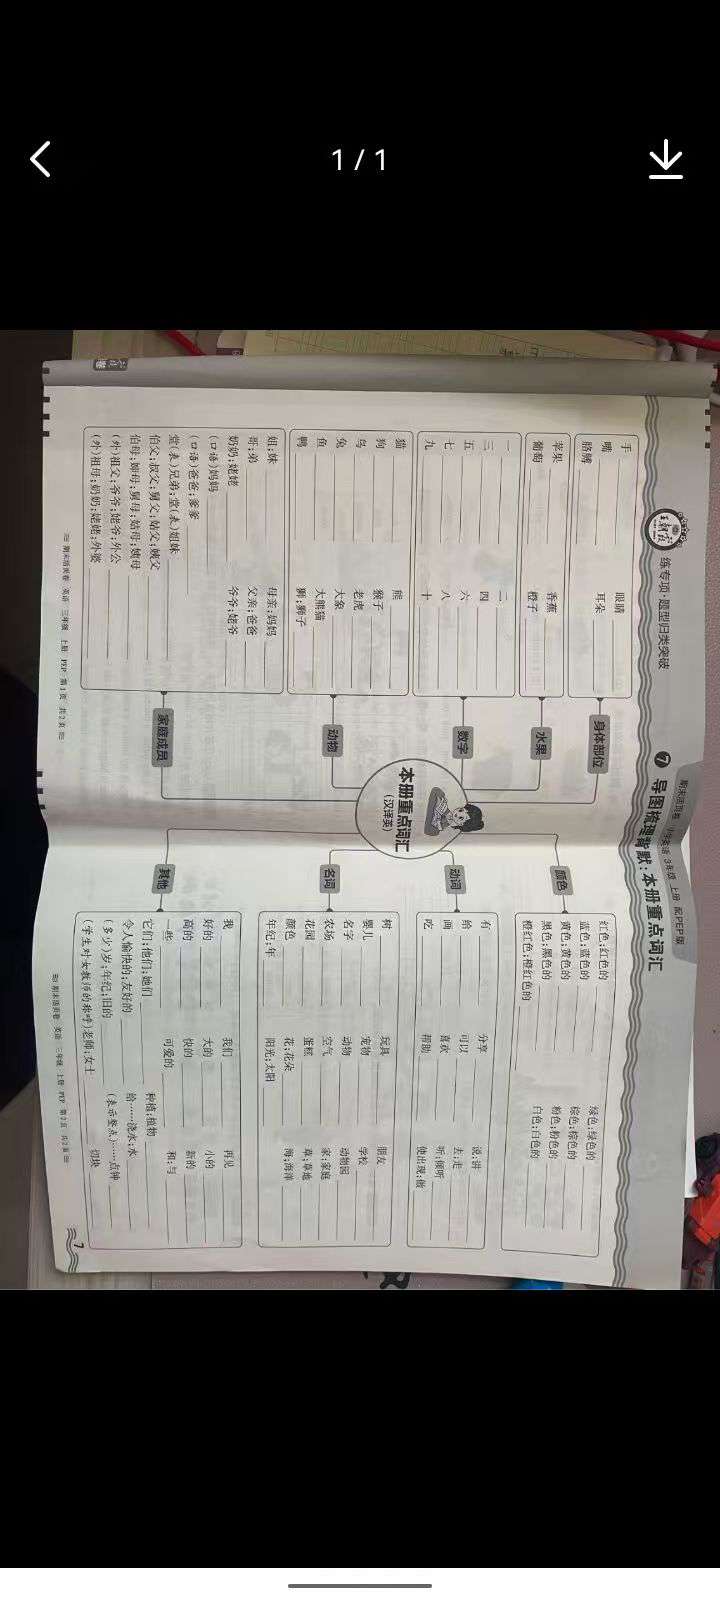 1 / 1
王朝霞
练专项·题型归类突破
期末活页卷 小学英语 3年级 上册 配PEP版
7 导图梳理背默:本册重点词汇
本册重点词汇
(汉译英)
身体部位
手 眼睛
嘴 耳朵
胳膊
水果
苹果 香蕉
葡萄 橙子
数字
一 二
三 四
五 六
七 八
九 十
动物
猫 熊
狗 猴子
鸟 老虎
兔 大象
鱼 大熊猫
鸭 狮;狮子
家庭成员
姐;妹 母亲;妈妈
哥;弟 父亲;爸爸
奶奶;姥姥 爷爷;姥爷
(口语)妈妈
(口语)爸爸;爹爹
堂(表)兄弟;堂(表)姐妹
伯父;叔父;舅父;姑父;姨父
伯母;婶母;舅母;姑母;姨母
(外)祖父;爷爷;姥爷;外公
(外)祖母;奶奶;姥姥;外婆
期末活页卷 英语 三年级 上册 PEP 第1页 共2页
颜色
红色;红色的 绿色;绿色的
蓝色;蓝色的 棕色;棕色的
黄色;黄色的 粉色;粉色的
黑色;黑色的 白色;白色的
橙红色;橙红色的
动词
有 分享 说;讲
给 可以 去;走
画 喜欢 听;倾听
吃 帮助 使出现;做
名词
树 玩具 朋友
婴儿 宠物 学校
名字 动物 动物园
农场 空气 家;家庭
花园 蛋糕 草;草地
颜色 花;花朵 海;海洋
年纪;年 阳光;太阳
其他
我 我们 再见
好的 大的 小的
高的 快的 新的
一些 可爱的 和;与
它们;他们;她们 种植;植物
令人愉快的;友好的 给……浇水;水
(多少)岁;年纪;旧的 (表示整点)……点钟
(学生对女教师的称呼)老师;女士 切块
期末活页卷 英语 三年级 上册 PEP 第2页 共2页
7